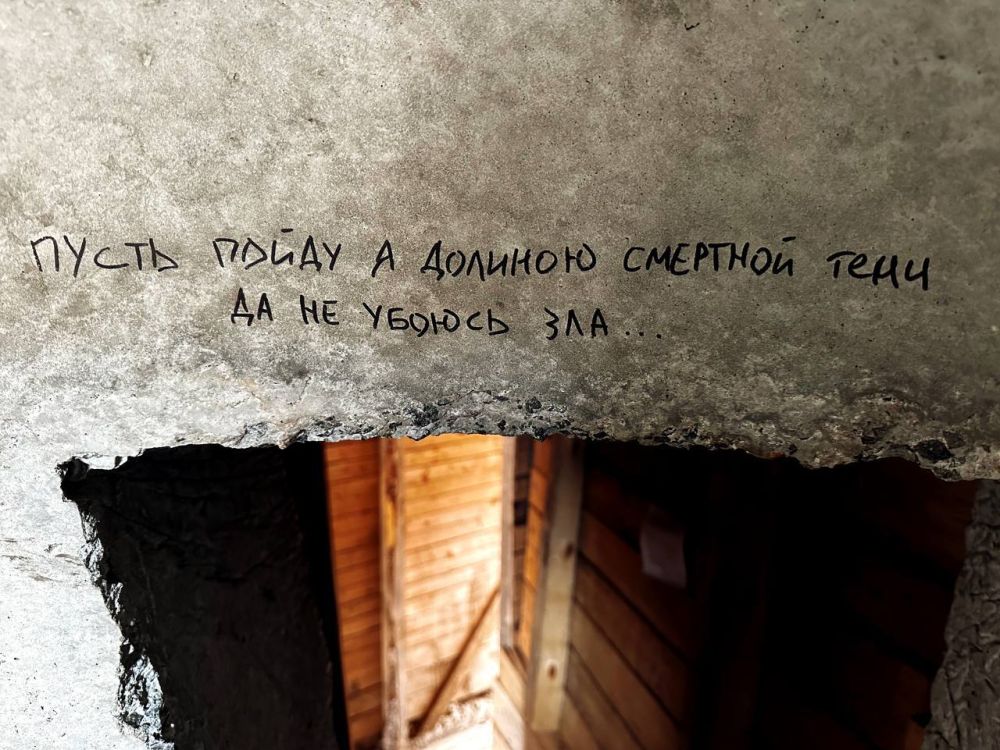 ПУСТЬ ПОЙДУ Я ДОЛИНОЮ СМЕРТНОЙ ТЕНИ
ДА НЕ УБОЮСЬ ЗЛА...